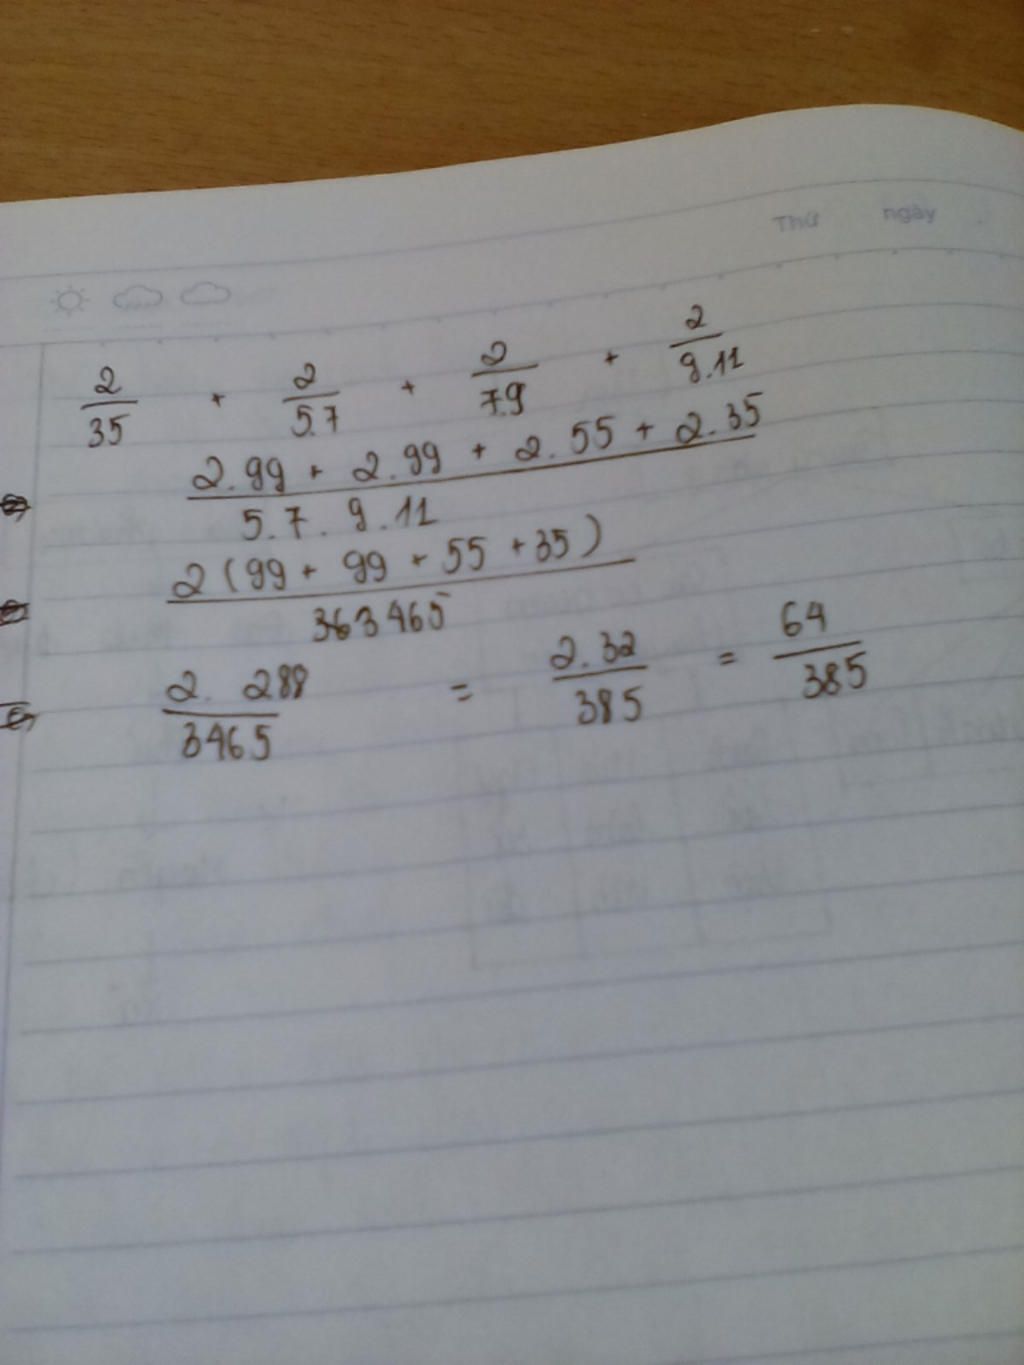 Thứ ngày
2/35 + 2/5.7 + 2/7.9 + 2/9.11
2.99 + 2.99 + 2.55 + 2.35 / 5.7.9.11
2(99 + 99 + 55 + 35) / 363465
2. 288 / 3465 = 2.32 / 385 = 64 / 385